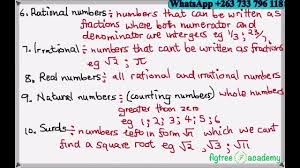 WhatsApp +263 733 796 118
6. Rational numbers :- numbers that can be written as
fractions where both numerator and
denominator are intergers eg 1/3; 23/4
7. Irrational :- numbers that cant be written as fractions
eg √2 ; π
8. Real numbers :- all rational and irrational numbers
9. Natural numbers :- (counting numbers) whole numbers
greater than zero
eg 1; 2; 3; 4; 5; 6
10. Surds :- numbers left in form √n which we cant
find a square root eg √2, √3; √11
figtree academy